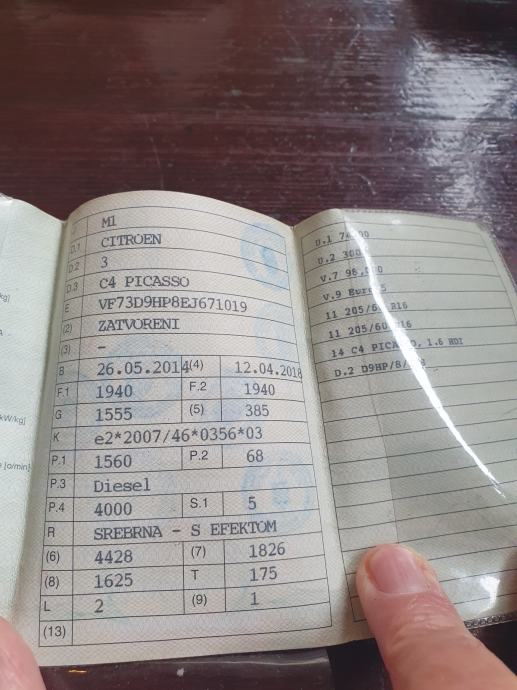 kg]
kW/kg]
[o/min]
J M1
D.1 CITROEN
D.2 3
D.3 C4 PICASSO
E VF73D9HP8EJ671019
(2) ZATVORENI
(3) –
B 26.05.2014 (4) 12.04.2018
F.1 1940 F.2 1940
G 1555 (5) 385
K e2*2007/46*0356*03
P.1 1560 P.2 68
P.3 Diesel
P.4 4000 S.1 5
R SREBRNA - S EFEKTOM
(6) 4428 (7) 1826
(8) 1625 T 175
L 2 (9) 1
(13)
U.1
U.2
V.7
V.9
11 205/6 R16
11 205/60 R16
14 C4 PICASSO, 1.6 HDI
D.2 D9HP/8/